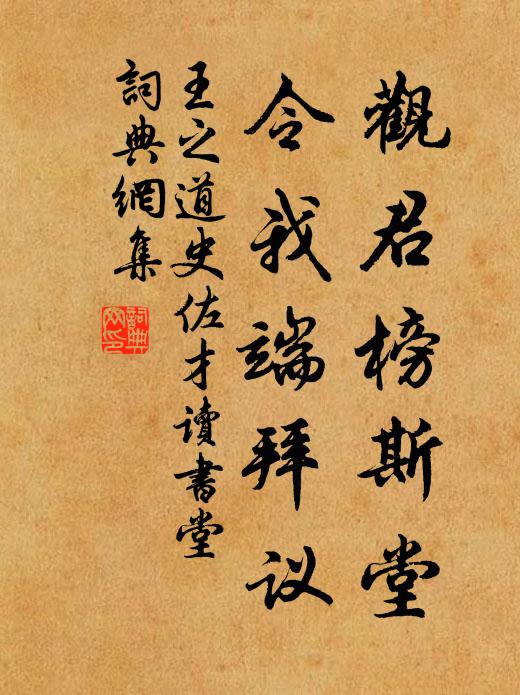 觀君榜斯堂
令我端拜议
王之道史佐才讀書堂
詞典網集
詞典
网印